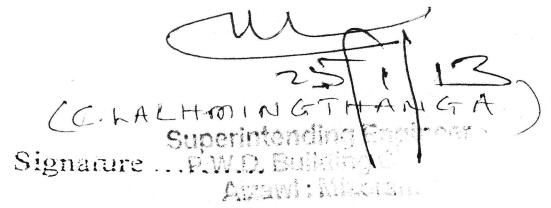 25/1/13
(C. LALHMINGTHANGA)
Superintending Engineer
Signature ... P.W.D. Building
Aizawl : Mizoram